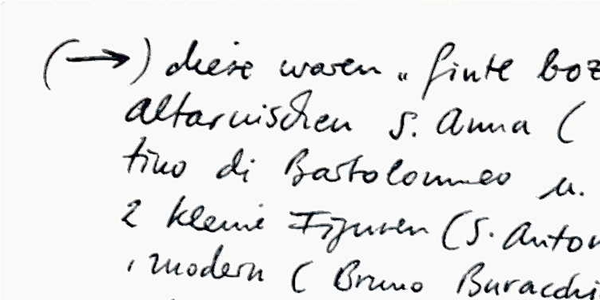 (→) diese waren „finte boz
altarnischen S. Anna (
tino di Bartolommeo u.
2 kleine Figuren (S. Anton
modern ( Bruno Buracchi